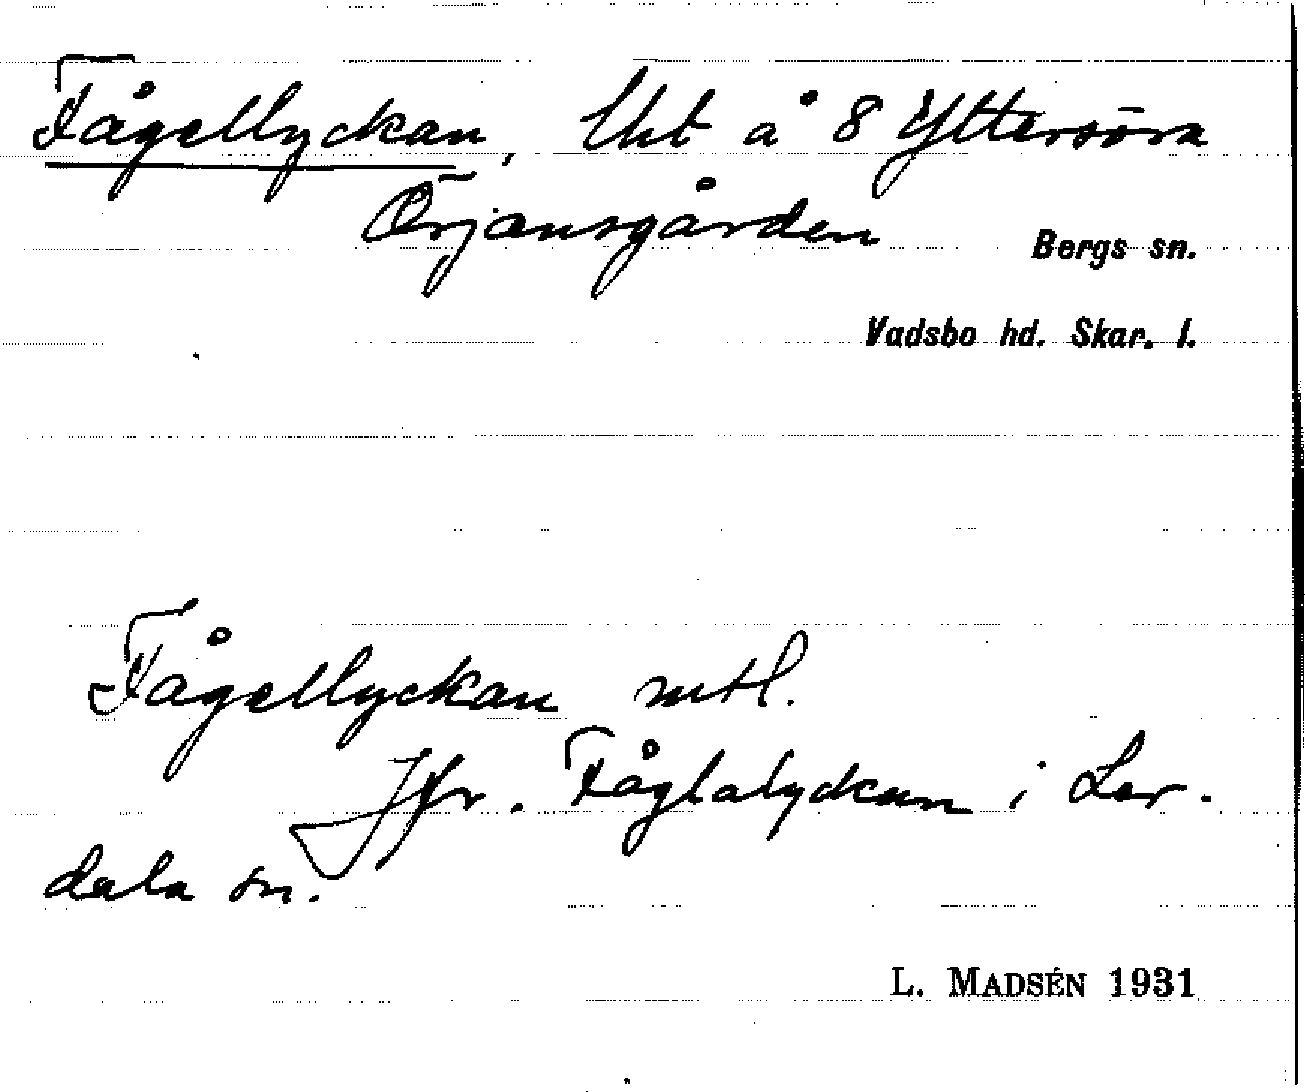 Fågellyckan, lht å 8 Yttersöra
Örjansgården
Bergs sn.
Vadsbo hd. Skar. l.
Fågellyckan mtl.
Jfr. Fåglalyckan i Ler-
dala sn.
L. MADSÉN 1931